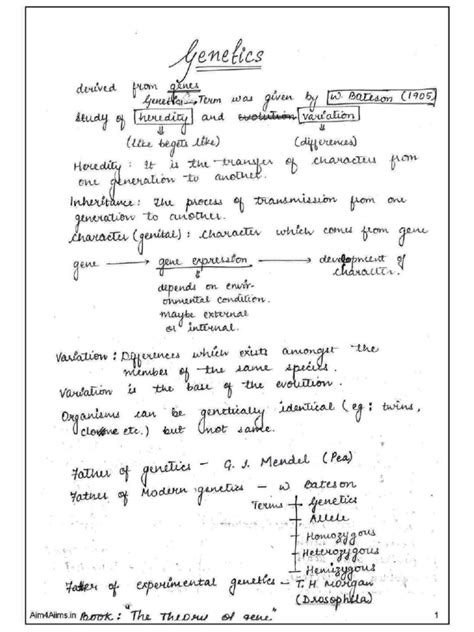 Genetics
derived from genes
Genetics → Term was given by W Bateson (1905)
study of heredity and evolution variation
(like begets like) (differences)
Heredity : It is the transfer of characters from
one generation to another.
Inheritance : the process of transmission from one
generation to another.
character (genital) : character which comes from gene
gene → gene expression → development of
character.
depends on envir-
onmental condition.
maybe external
or internal.
Variation : Differences which exists amongst the
member of the same species.
Variation is the base of the evolution.
Organisms can be genetically identical (eg : twins,
clone etc.) but not same.
Father of genetics – G. J. Mendel (Pea)
Father of Modern genetics – W Bateson
Terms Genetics
Allele
Homozygous
Heterozygous
Hemizygous
Father of experimental genetics – T. H. Morgan
(Drosophila)
Book : "The Theory of gene"
Aim4Aiims.in
1